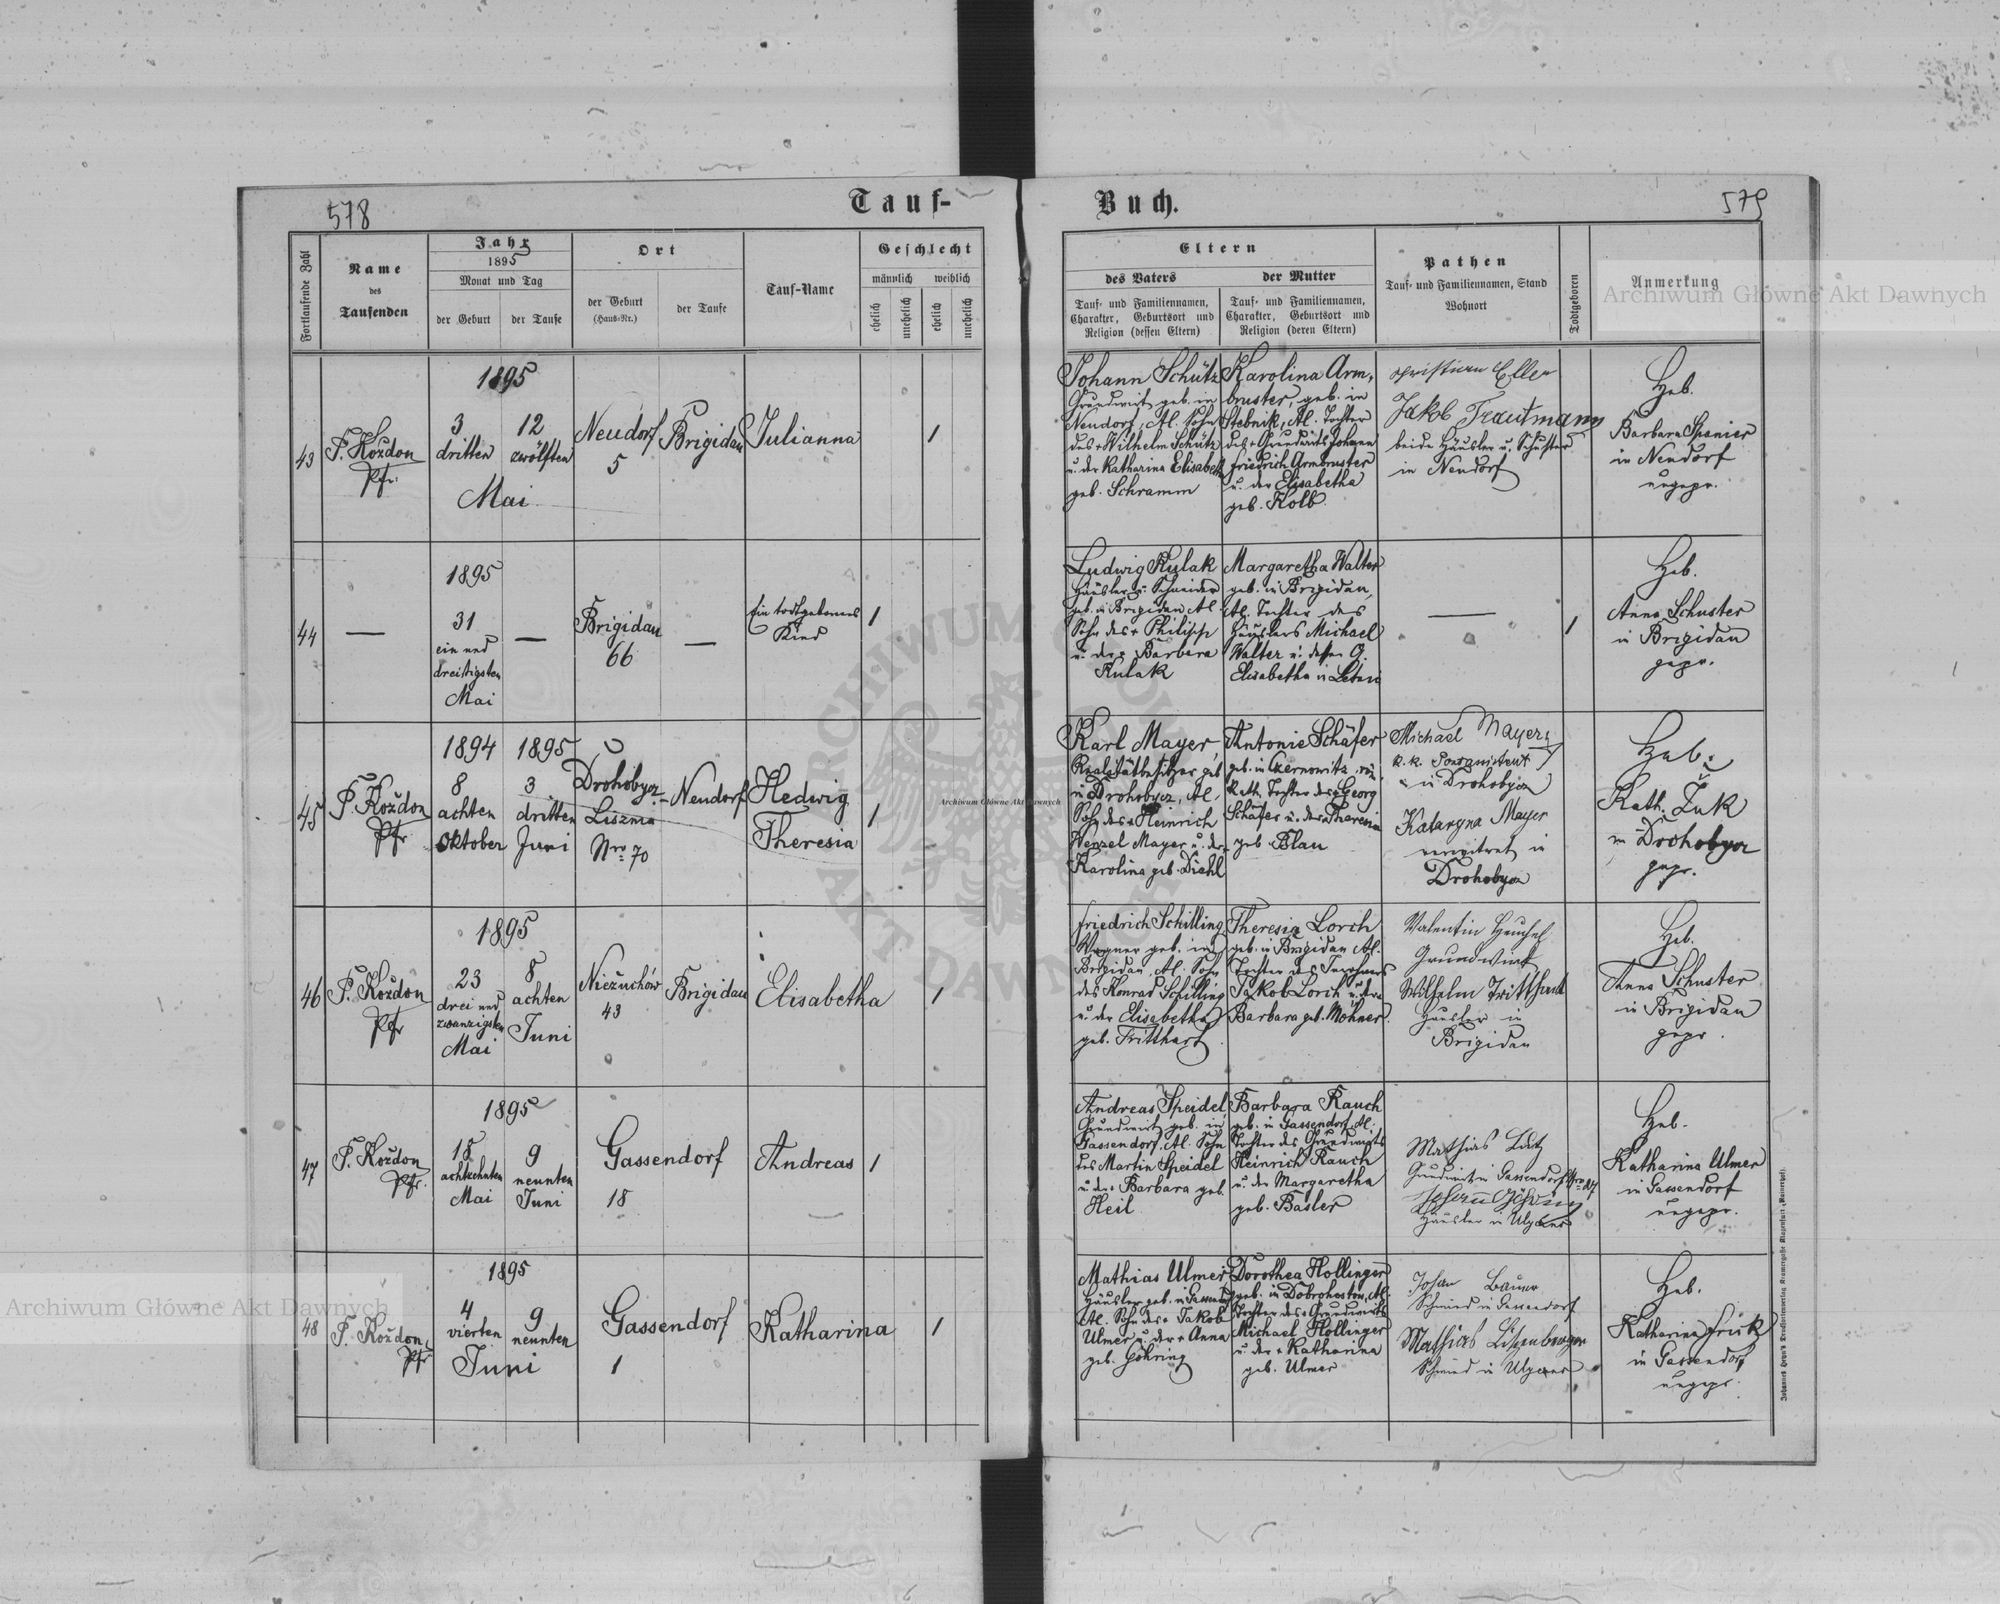 578
Tauf-
Buch.
579
Fortlaufende Zahl
Name
des
Taufenden
Jahr
1895
Monat und Tag
der Geburt
der Taufe
Ort
der Geburt
(Haus-Nr.)
der Taufe
Tauf-Name
Geschlecht
männlich
weiblich
ehelich
unehelich
ehelich
unehelich
Eltern
des Vaters
Tauf- und Familiennamen,
Charakter, Geburtsort und
Religion (dessen Eltern)
der Mutter
Tauf- und Familiennamen,
Charakter, Geburtsort und
Religion (deren Eltern)
Pathen
Tauf- und Familiennamen, Stand
Wohnort
Todtgeboren
Anmerkung
Archiwum Główne Akt Dawnych
43
P. Koždon
Pfr.
1895
3
dritten
12
zwölften
Mai
Neudorf
5
Brigidau
Julianna
1
Johann Schütz
Grundwirt geb. in
Neudorf, Al. Sohn
des + Wilhelm Schütz
u. der Katharina Elisabeth
geb. Schramm
Karolina Arm-
bruster, geb. in
Stebnik, Al. Tochter
des + Grundwirts Johann
Friedrich Armbruster
u. der Elisabetha
geb. Kolb
Christian Eller
Jakob Trautmann
beide Häusler u. Schuster
in Neudorf
Heb.
Barbara Spanier
in Neudorf
ungepr.
44
—
1895
31
ein und
dreißigsten
Mai
—
Brigidau
66
—
Ein todtgebornes
Kind
1
Ludwig Kulak
Häusler u. Schneider
geb. in Brigidau Al.
Sohn des + Philipp
u. der Barbara
Kulak
Margaretha Walter
geb. in Brigidau,
Al. Tochter des
Häuslers Michael
Walter u. dessen G.
Elisabetha
—
1
Heb.
Anna Schuster
in Brigidau
gepr.
45
P. Koždon
Pfr
1894
8
achten
Oktober
1895
3
dritten
Juni
Drohobycz
Lisznia
Nro 70
Neudorf
Hedwig
Theresia
1
Karl Mayer,
Realitätbesitzer geb.
in Drohobycz, Al.
Sohn des + Heinrich
Wenzel Mayer u. der
Karolina geb. Diehl
Antonie Schäfer
geb. in Czernowitz, röm.
Kath. Tochter des + Georg
Schäfer u. der Theresia
geb Blau
Michael Mayer
k. k.
in Drohobycz
Kataryna Mayer
verwitwet in
Drohobycz
Heb.
Kath. Žuk
in Drohobycz
gepr.
46
P. Koždon
Pfr
1895
23
drei und
zwanzigsten
Mai
8
achten
Juni
Niežuchów
43
Brigidau
Elisabetha
1
Friedrich Schilling
Wagner geb. in
Brigidau, Al. Sohn
des Konrad Schilling
u. der Elisabetha
geb. Tritthart
Theresia Lorch
geb. in Brigidau Al.
Tochter des
Jakob Lorch u. der
Barbara geb. Mohner.
Valentin Heuchel
Grundwirt
Wilhelm Tritthardt
Häusler in
Brigidau
Heb.
Anna Schuster
in Brigidau
gepr.
47
P. Koždon
Pfr.
1895
18
achtzehnten
Mai
9
neunten
Juni
Gassendorf
18
Andreas
1
Andreas Speidel,
Grundwirt geb. in
Gassendorf, Al. Sohn
des Martin Speidel
u. der + Barbara geb.
Heil
Barbara Rauch
geb. in Gassendorf Al.
Tochter des Grundwirts
Heinrich Rauch
u. der Margaretha
geb. Basler
Mathias Lutz
Grundwirt in Gassendorf Nro 27
Häusler in
Heb.
Katharina Ulmer
in Gassendorf
ungepr.
48
P. Koždon
Pfr
1895
4
vierten
9
neunten
Juni
Gassendorf
1
Katharina
1
Mathias Ulmer
Häusler geb. in Gassendorf
Al. Sohn des + Jakob
Ulmer u. der + Anna
geb. Göhring
Dorothea Hollinger
geb. in Dobrohostow, Al.
Tochter des + Grundwirts
Michael Hollinger
u. der + Katharina
geb. Ulmer
Johan Bauer
Schmied in Gassendorf
Mathias
Schmied in
Heb.
Katharina Frick
in Gassendorf
ungepr.
Archiwum Główne Akt Dawnych
Archiwum Główne Akt Dawnych
ARCHIWUM GŁÓWNE
AKT DAWNYCH